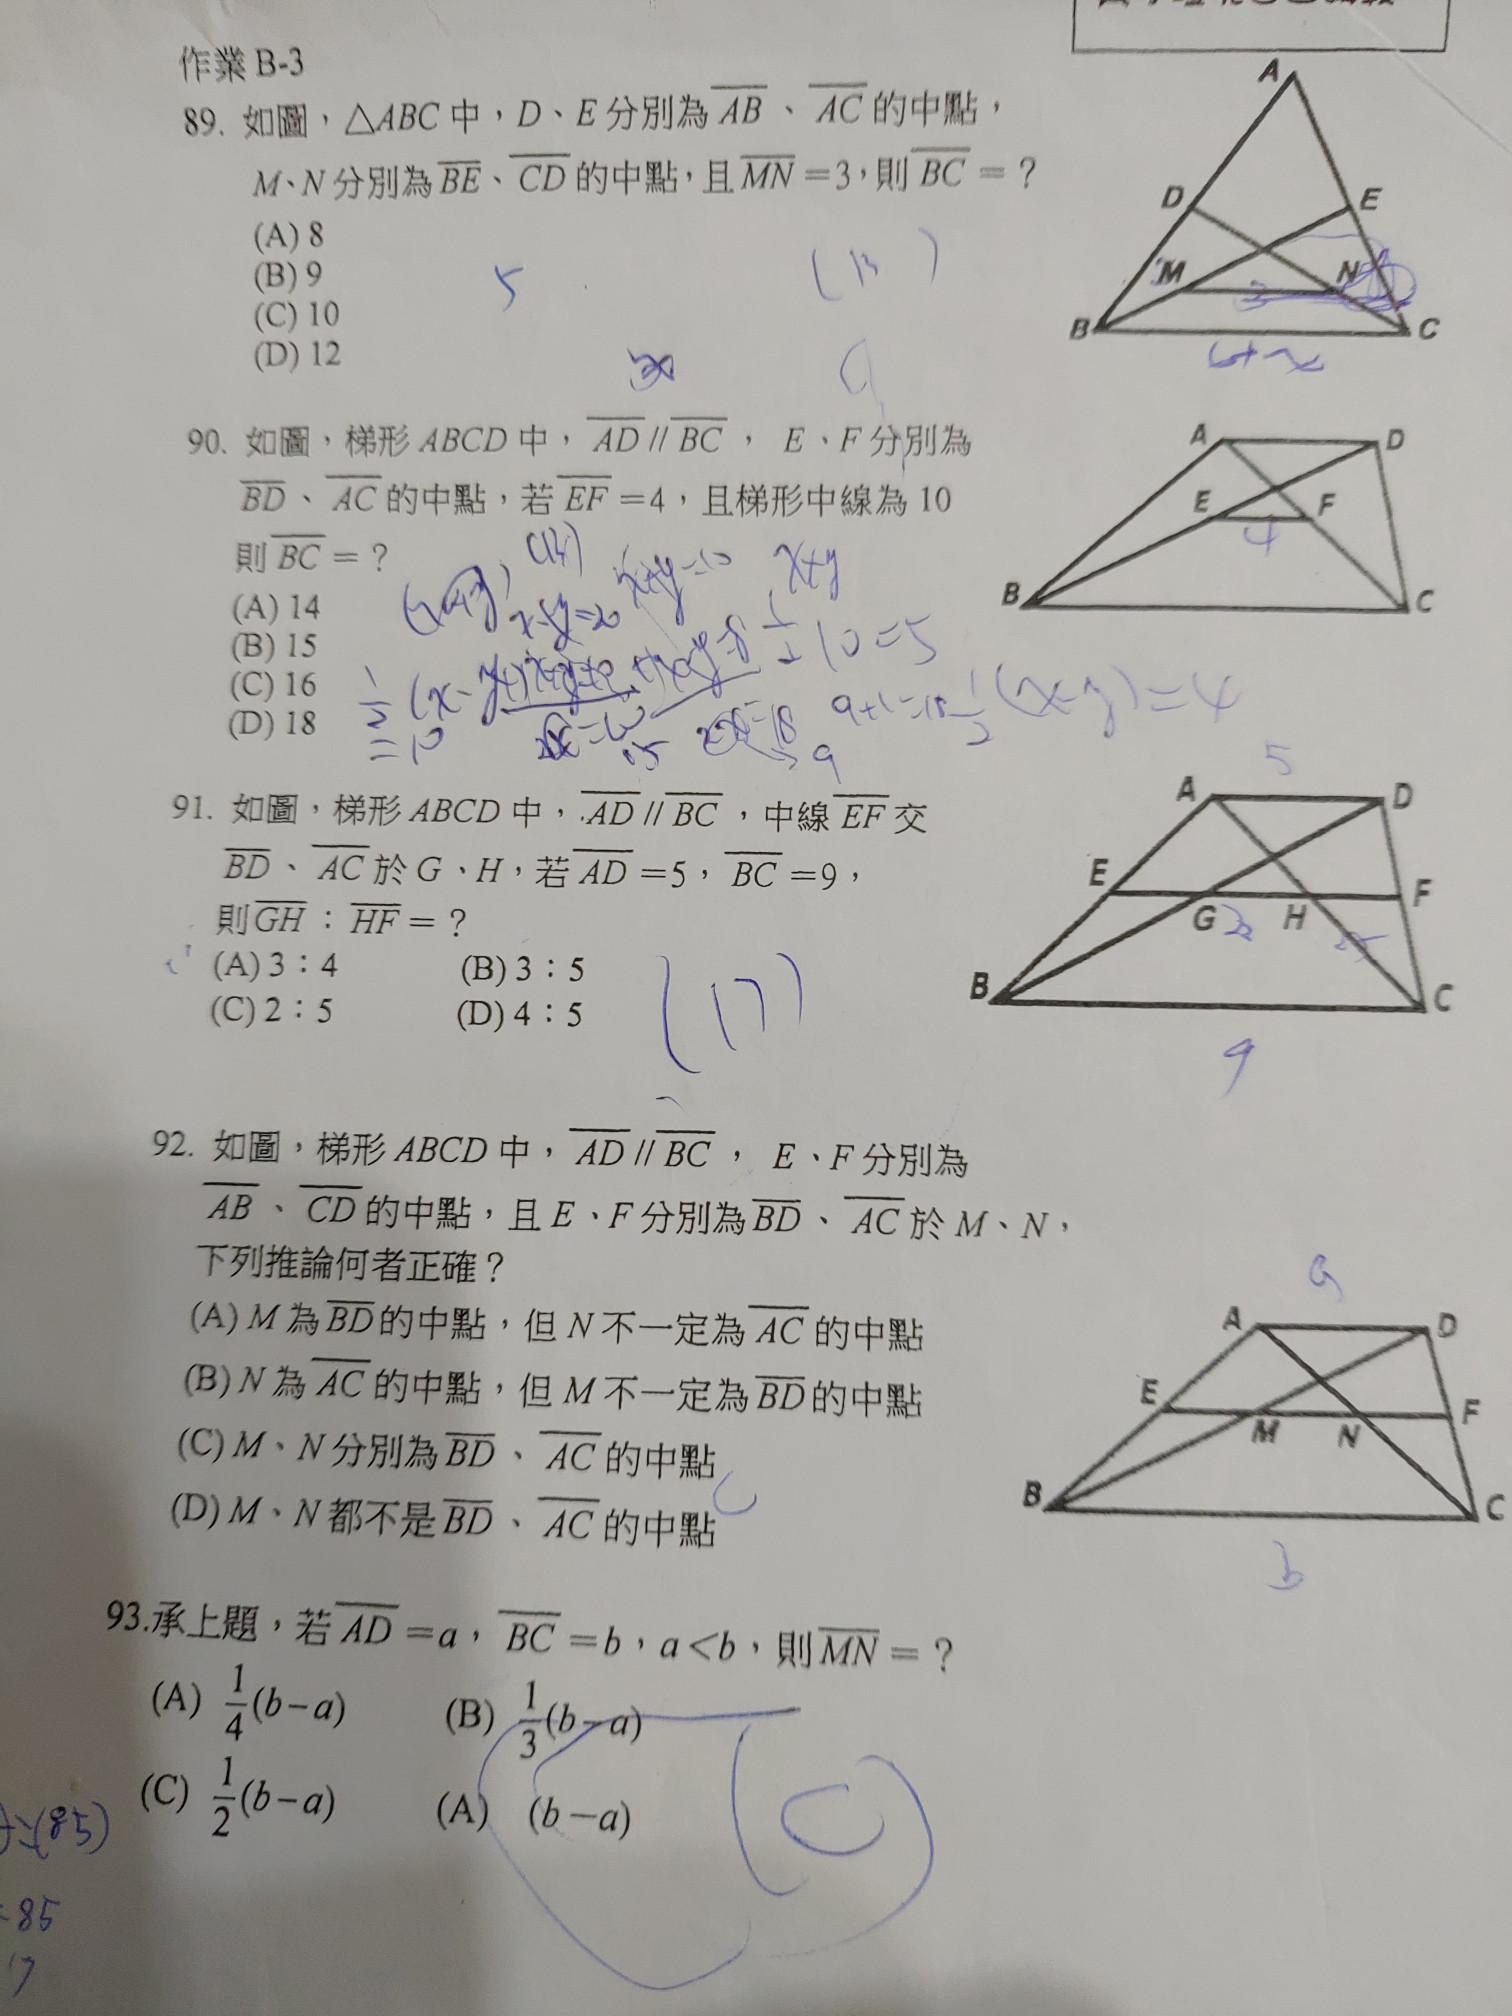 作業 B-3
89. 如圖，△ABC 中，D、E 分別為 AB、AC 的中點，
M、N 分別為 BE、CD 的中點，且 MN＝3，則 BC＝？
(A) 8
(B) 9
(C) 10
(D) 12
5
A
D
E
M
N
B
C
3
6+x
90. 如圖，梯形 ABCD 中，AD // BC，E、F 分別為
BD、AC 的中點，若 EF＝4，且梯形中線為 10
則 BC＝？
(A) 14
(B) 15
(C) 16
(D) 18
x+y=10
x+y
½(x-y)=4
A
D
E
F
4
B
C
91. 如圖，梯形 ABCD 中，AD // BC，中線 EF 交
BD、AC 於 G、H，若 AD＝5，BC＝9，
則 GH：HF＝？
(A) 3：4
(B) 3：5
(C) 2：5
(D) 4：5
5
A
D
E
G
H
F
B
C
9
92. 如圖，梯形 ABCD 中，AD // BC，E、F 分別為
AB、CD 的中點，且 E、F 分別為 BD、AC 於 M、N，
下列推論何者正確？
(A) M 為 BD 的中點，但 N 不一定為 AC 的中點
(B) N 為 AC 的中點，但 M 不一定為 BD 的中點
(C) M、N 分別為 BD、AC 的中點
(D) M、N 都不是 BD、AC 的中點
C
a
A
D
E
M
N
F
B
C
b
93.承上題，若 AD＝a，BC＝b，a＜b，則 MN＝？
(A) 1/4(b－a)
(B) 1/3(b－a)
(C) 1/2(b－a)
(A) (b－a)
(C)
85